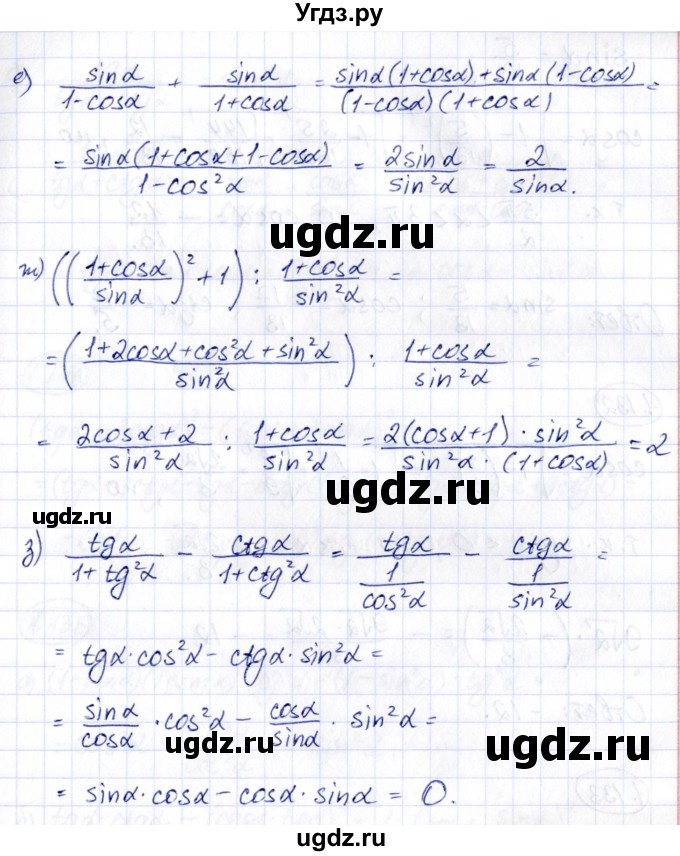 Угдз.ру
е) sinα/(1-cosα) + sinα/(1+cosα) = (sinα(1+cosα)+sinα(1-cosα))/((1-cosα)(1+cosα)) =
= sinα(1+cosα+1-cosα)/(1-cos²α) = 2sinα/sin²α = 2/sinα.
ugdz.ru
ж) (((1+cosα)/sinα)² + 1) : (1+cosα)/sin²α =
ugdz.ru
= ((1+2cosα+cos²α+sin²α)/sin²α) : (1+cosα)/sin²α =
= (2cosα+2)/sin²α : (1+cosα)/sin²α = (2(cosα+1)·sin²α)/(sin²α·(1+cosα)) = 2
ugdz.ru
ugdz.ru
з) tgα/(1+tg²α) - ctgα/(1+ctg²α) = tgα/(1/cos²α) - ctgα/(1/sin²α) =
= tgα·cos²α - ctgα·sin²α =
= sinα/cosα · cos²α - cosα/sinα · sin²α =
ugdz.ru
ugdz.ru
= sinα·cosα - cosα·sinα = 0.
ugdz.ru